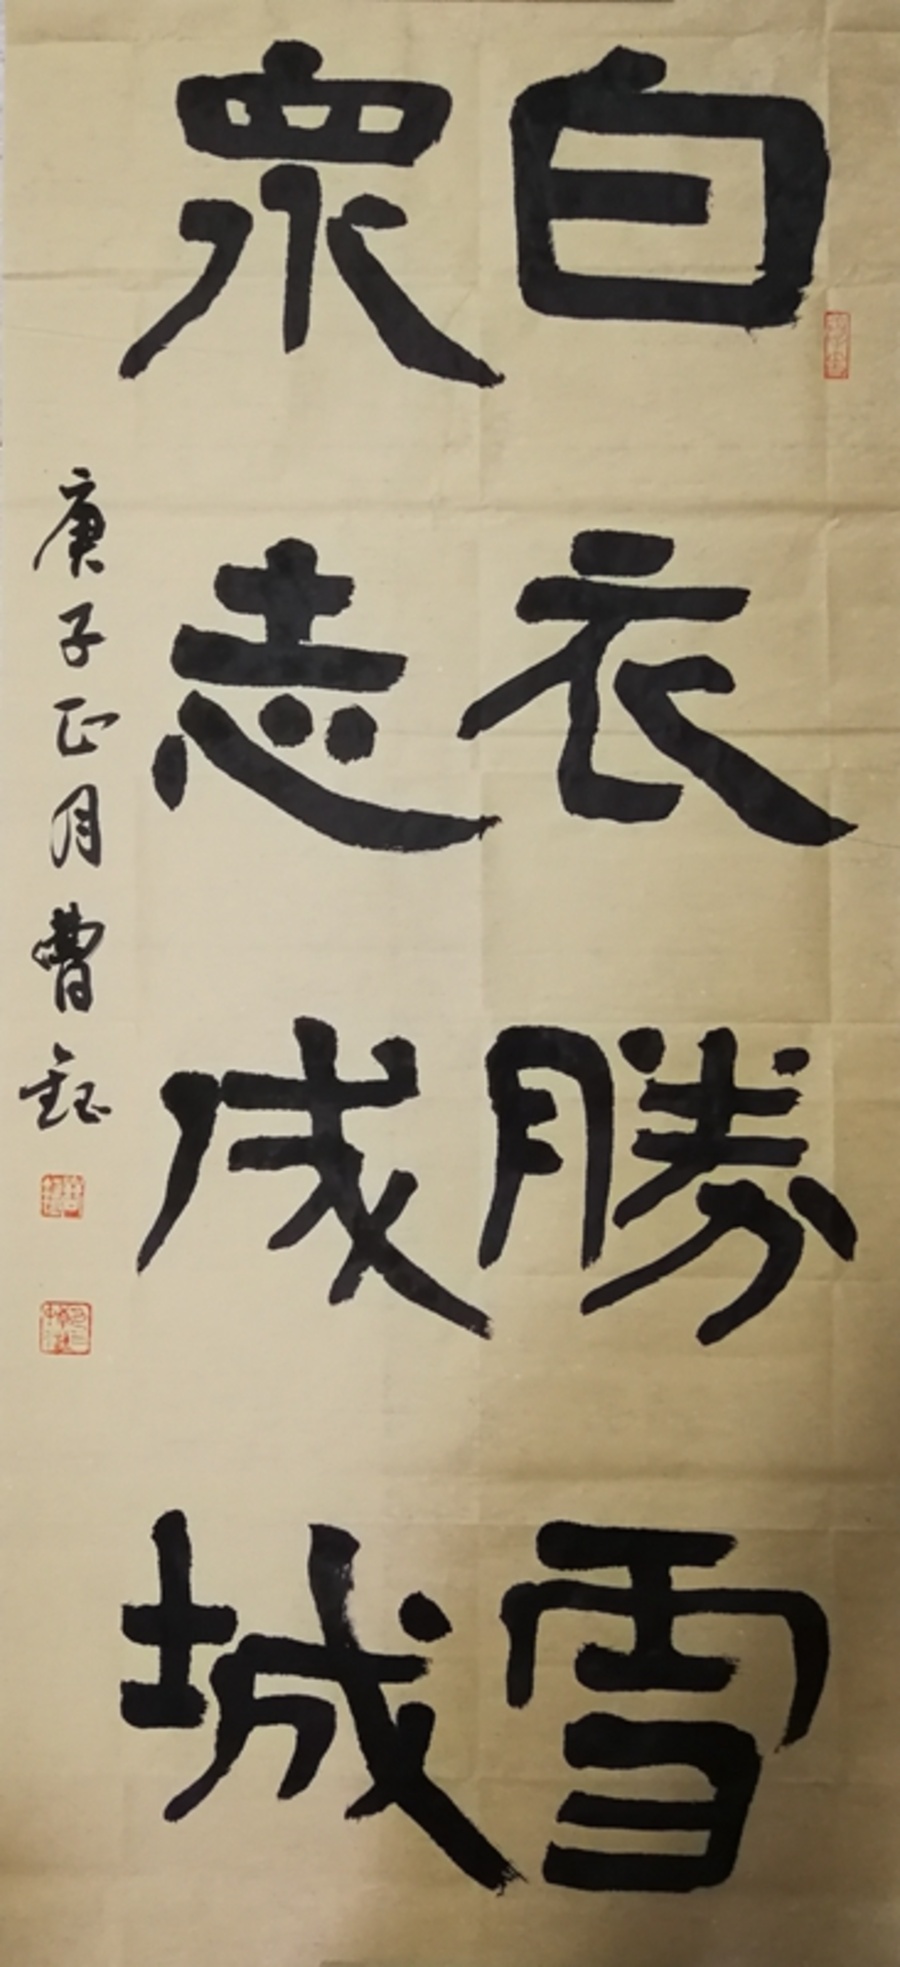 白衣勝雪
眾志成城
庚子正月曹鈺